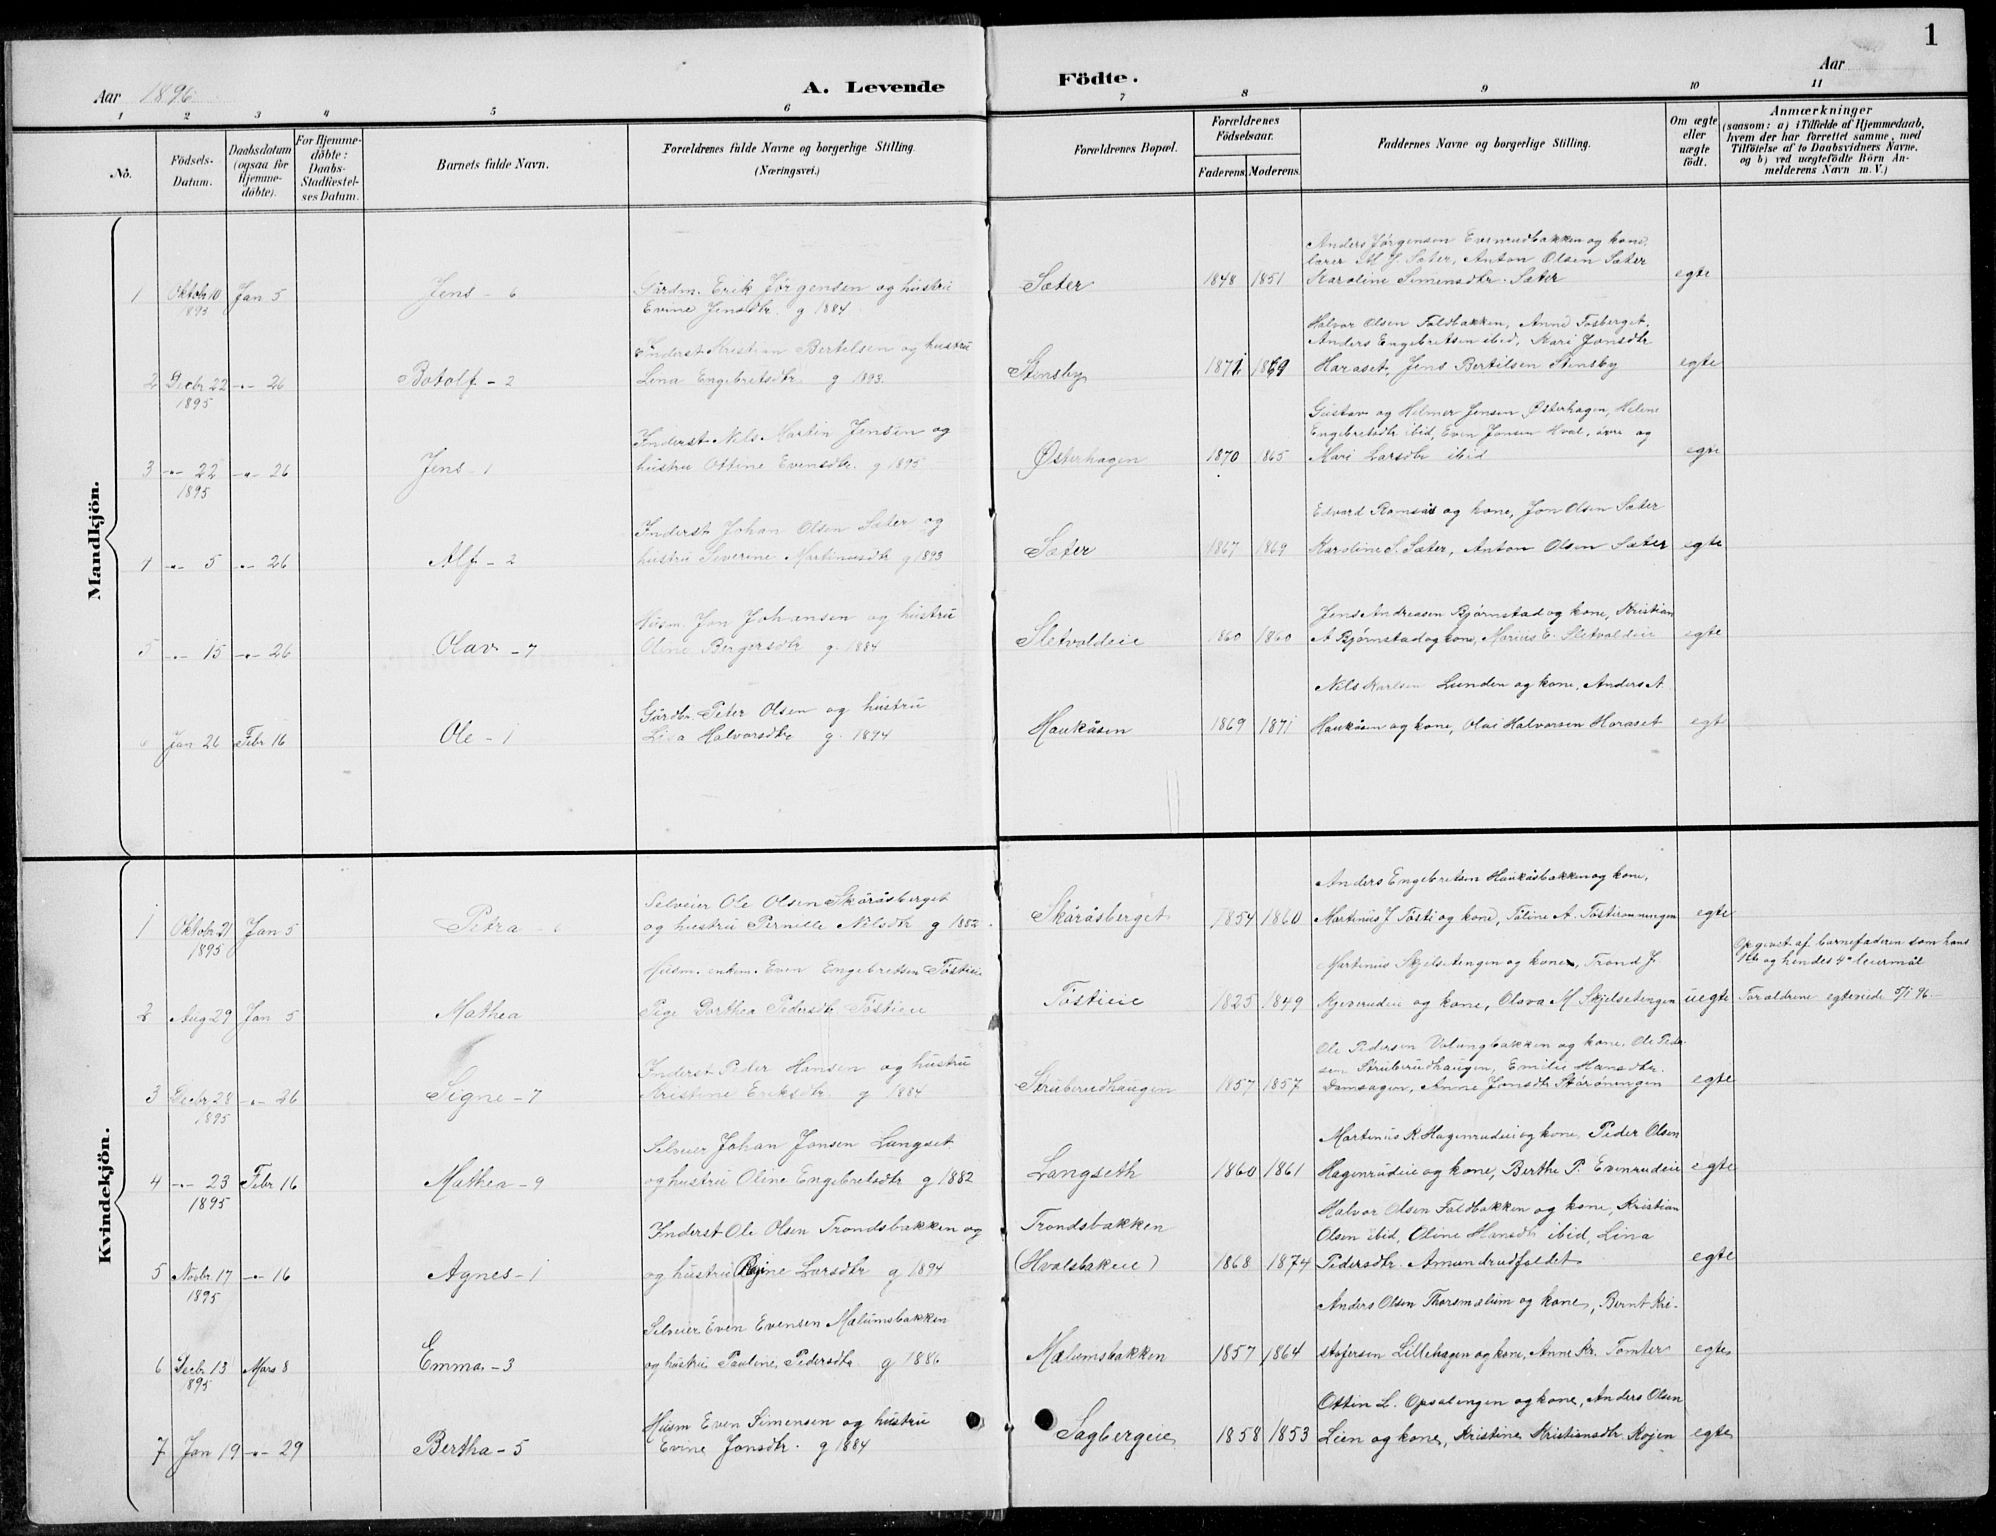 1
Aar 1896
A. Levende
Födte.
Aar
1 2 3 4 5 6 7 8 9 10 11
No.
Födsels-Datum.
Daabsdatum (ogsaa for Hjemme-döbte).
For Hjemme-döbte: Daabs-Stadfæstel-ses Datum.
Barnets fulde Navn.
Forældrenes fulde Navne og borgerlige Stilling. (Næringsvei.)
Forældrenes Bopæl.
Forældrenes Födselsaar.
Faderens. Moderens.
Faddernes Navne og borgerlige Stilling.
Om ægte eller uægte födt.
Anmærkninger
(saasom: a) i Tilfælde af Hjemmedaab, hvem der har forrettet samme, med Tilföielse af to Daabsvidners Navne, og b) ved uægtefödte Börn An-melderens Navn m. V.)
Mandkjön.
Anders Jørgensen Evenrudbakken og kone,
lærer M. J. Sæter, Anton Olsen Sæter
1 Oktob 10 Jan 5 Jens - 6 Erik Jørgensen og hustru Sæter 1848 1851 Karoline Simensdtr. Sæter egte
1895 Evine Jensdtr. g 1884
Halvor Olsen Faldbakken, Anne Fosberget,
Inderst Kristian Bertelsen og hustru Anders Engebretsen ibid, Kari Jonsdtr
2 Decbr 22 -"- 26 Botolf - 2 Lena Engebretsdtr. g 1893. Stensby 1871 1869 Haraset, Jens Bertilsen Stensby egte
1895
Gustav og Helmer Jensen Østerhagen, Helene
Inderst Nils Martin Jensen og Engebretsdtr ibid, Even Jonsen Hval, øvre og
3 -"- 22 -"- 26 Jens - 1 hustru Ottine Evensdtr. g 1895 Østerhagen 1870 1865 Mari Larsdtr ibid egte
1895
Inderst Johan Olsen Sæter og Edvard Ramsås og kone, Jon Olsen Sæter
4 -"- 5 -"- 26 Alf - 2 hustru Severine Martinusdtr g 1893 Sæter 1867 1869 Karoline S. Sæter, Anton Olsen Sæter egte
Husm. Jon Johansen og hustru Jens Andreasen Bjørnstad og kone, Kristian
5 -"- 15 -"- 26 Olav - 7 Oline Bergersdtr g. 1884 Sletvoldeie 1860 1860 A Bjørnstad og kone, Marius E. Sletvoldeie egte
Gårdbr. Peter Olsen og hustru Nils Karlsen Lunden og kone, Anders A.
6 Jan 26 Febr 16 Ole - 1 Lisa Halvorsdtr g. 1894 Haukåsen 1869 1871 Haukåsen og kone, Olai Halvorsen Haraset egt
Kvindekjön.
Selveier Ole Olsen Skåråsberget Anders Engebretsen Haukåsbakken og kone,
1 Oktob 21 Jan 5 Petra og hustru Pernille Nilsdtr g 1882. Skåråsberget 1854 1860 Martinus J Tøsti og kone, Toline A. Tøstirønningen egte
1895
Opgivet af barnefaderen som hans
Husm. enkem. Even Engebretsen Tøstieie Martinus Skjelsetengen og kone, Trond J. 1ste og hendes 4de leiermål
2 Aug 29 Jan 5 Mathea Pige Dorthea Pedersdtr Tøstieie Tøstieie 1825 1849 Kjeverudeie og kone, Olava M Skjelsetengen uegte Forældrene egteviede 5/1 96.
Ole Pedersen Volungbakken og kone, Ole Peder
Inderst Peder Hansen og hustru sen Struberudhaugen, Emilie Hansdtr.
3 Decbr 28 -"- 26 Signe - 7 Kristine Eriksdtr. g 1884 Struberudhaugen 1857 1857 Damsagen, Anne Jonsdtr Stårønengen egte
1895
Selveier Johan Jonsen Langset Martinus K Hagenrudeie og kone, Peder Olsen
4 -"- 23 Febr 16 Mathea - 9 og hustru Oline Engebretsdtr g 1882 Langseth 1860 1861 Hagenrudeie og kone, Berthe P. Evenrudeie egte
1895
Halvor Olsen Faldbakken og kone, Kristian
Inderst Ole Olsen Trondsbakken og Trondsbakken Olsen ibid, Oline Hansdtr ibid, Lina
5 Novbr 17 -"- 16 Agnes - 1 og hustru Ragine Larsdtr g 1894 (Hvalsbakeie) 1868 1874 Pedersdtr. Amundrudfaldet egte
1895
Selveier Even Evensen Mælumsbakken Anders Olsen Thorsmælum og kone, Bernt Kri-
6 Decbr 13 Mars 8 Emma - 3 og hustru Pauline Pedersdtr g 1886 Mælumsbakken 1857 1864 stofersen Lillehagen og kone, Anne Kr. Tomter egte
1895
Husm Even Simensen og hustru Ottin L. Opsalengen og kone, Anders Olsen
7 Jan 19 -"- 29 Bertha - 5 Evine Jonsdtr. g 1884 Sagbergeie 1858 1853 Lien og kone, Kristine Kristiansdtr Kojen egte